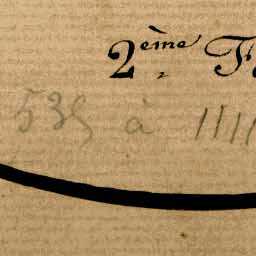 2ème F
535 à 1111